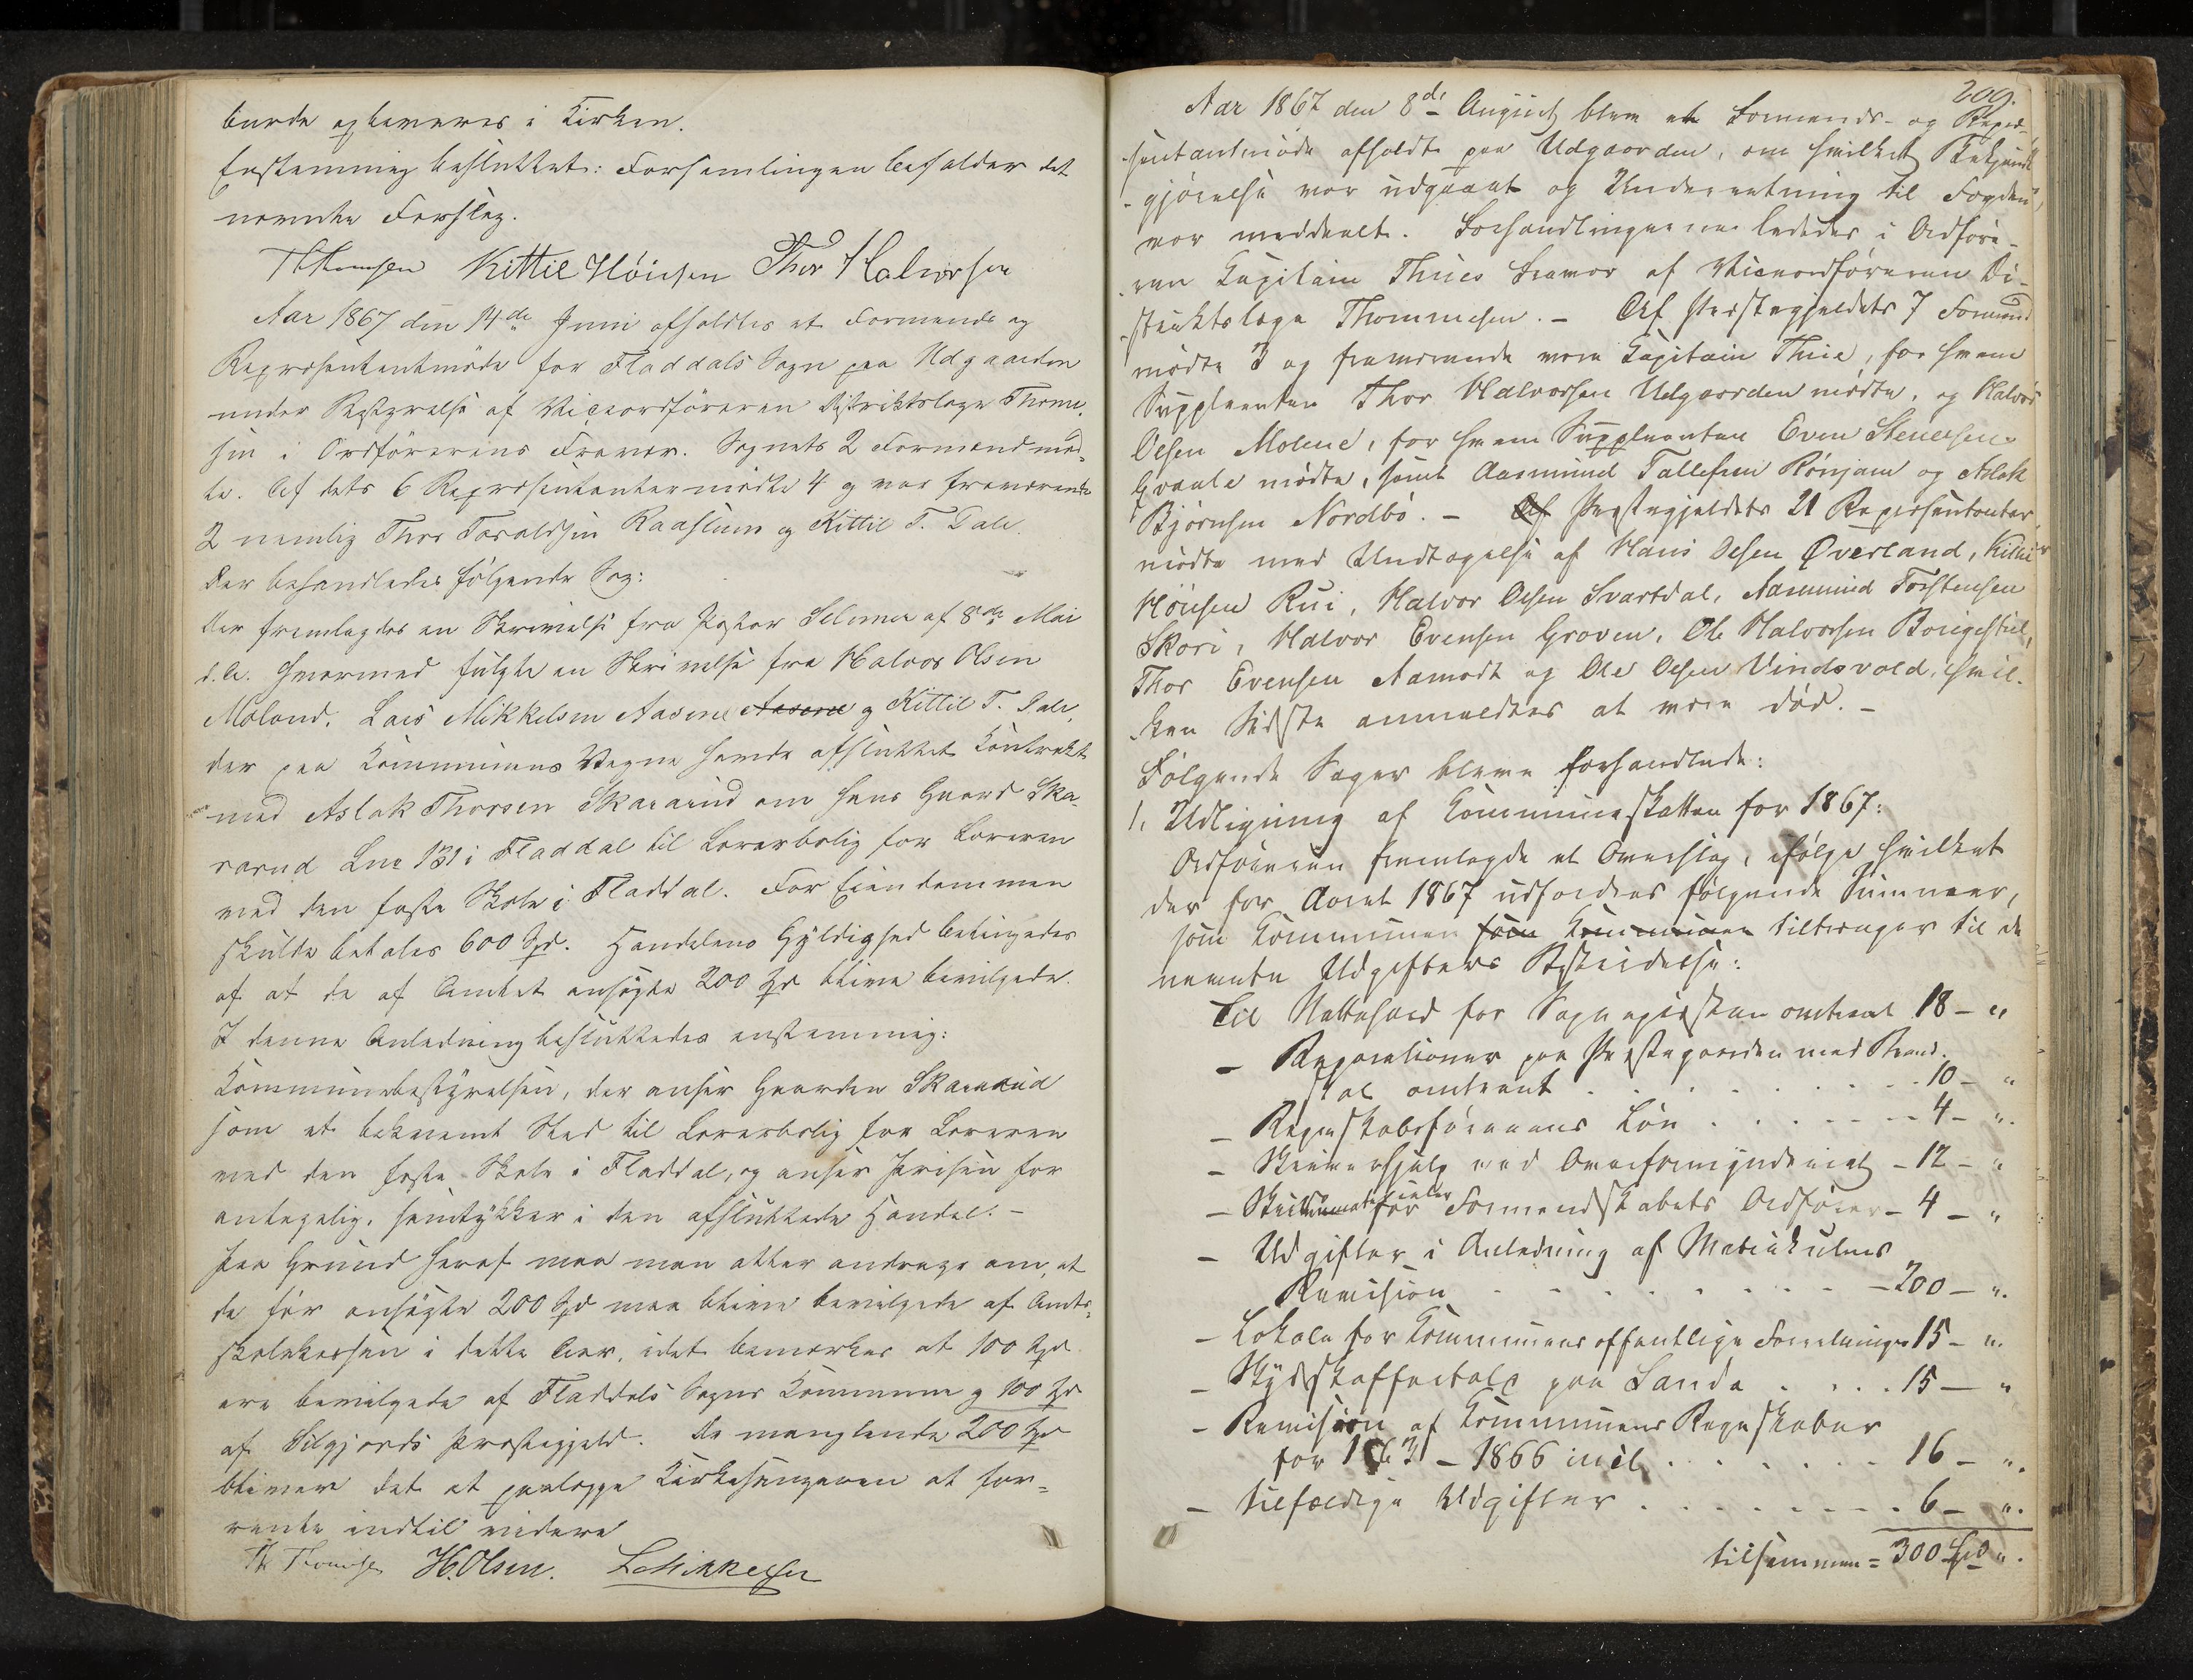 burde opbevares i Kirken.
Enstemmig besluttet: Forsamlingen befalder det
nævnte Forslag.
Th Thomsen Kittil Høinsen Thor Halvorsen
Aar 1867 den 14de Juni afholdtes et Formands og
Repræsentantmøde for Fladdals Sogn paa Udgaarden
under Bestyrelse af Viceordføreren Distriktslæge Thom-
sen i Ordførerens Fravær. Sognets 2 Formænd mød-
te. Af dets 6 Repræsentanter mødte 4 og var fraværende
2 nemlig Thor Taraldsen Raaslum og Kittil T. Dale.
Der behandledes følgende Sag:
Der fremlagdes en Skrivelse fra Pastor Selmer af 8de Mai
d. A. hvormed fulgte en Skrivelse fra Halvor Olsen
Moland, Lars Mikkelsen Aasene Aasene og Kittil T. Dale,
der paa Kommunens Vegne havde afsluttet Kontrakt
med Aslak Thorsen Skararud om hans Gaard Ska-
rarud Lnr 131 i Fladdal til Lærerbolig for Læreren
ved den faste Skole i Fladdal. For Eiendommen
skulde betales 600 Spd. Handelens Gyldighed betingedes
af at de af Amtet ansøgte 200 Spd bliver bevilgede.
I denne Anledning besluttedes enstemmig:
Kommunebestyrelsen, der anser Gaarden Skararud
som et bekvemt Sted til Lærerbolig for Læreren
ved den faste Skole i Fladdal, og anser Prisen for
antagelig, samtykker i den afsluttede Handel. -
Paa Grund heraf maa man atter andrage om, at
de før ansøgte 200 Spd maa blive bevilgede af Amts-
skolekassen i dette Aar, idet bemærkes at 100 Spd
ere bevilgede af Fladdals Sogns Kommune og 100 Spd
af Silgjords Præstegjeld. De manglende 200 Spd
bliver det at paalægge Kirkesangeren at for-
rente indtil videre
Th Thomsen H. Olsen. L Mikkelsen
209.
Aar 1867 den 8de August blev et Formands- og Repræ-
sentantmøde afholdt paa Udgaarden, om hvilket Bekjendt-
gjørelse var udgaaet og Underretning til Fogden
var meddeelt. Forhandlingerne lededes i Ordføre-
ren Kapitain Thues Fravær af Viceordføreren Di-
striktslæge Thommesen. - Af Præstegjeldets 7 Formænd
mødte 3 og fraværende vare Kapitain Thue, for hvem
Suppleanten Thor Halvorsen Udgaarden mødte, og Halvor
Olsen Molene, for hvem Suppleanten Even Stenersen
Graale mødte, samt Aasmund Tallefsen Rønjam og Aslak
Bjørnsen Nordbø. - Af Præstegjeldets 21 Repræsentanter
mødte med Undtagelse af Hans Olsen Øverland, Kittil
Høinsen Rui, Halvor Olsen Svartdal, Aasmund Torstensen
Skori, Halvor Evensen Groven, Ole Halvorsen Børigestul,
Thor Evensen Aamodt og Ole Olsen Vindsvold, hvil-
ken Sidste anmeldtes at være død. -
Følgende Sager bleve forhandlede:
1. Udligning af Kommuneskatten for 1867:
Ordføreren fremlagde et Overslag, ifølge hvilket
der for Aaret 1867 udfordres følgende Summer,
som Kommunen som Kommunen tiltrænger til de
nævnte Udgifters Bestridelse:
Til Nattehold for Sognepræsten omtrent 18 - "
- Reparationer paa Præstegaarden med Brand-
stol omtrent . . . . . . . . 10 - "
- Regnskabsførerens Løn . . . . . . 4 - ".
- Skriverhjelp ved Overformynderiet - 12 - "
- Skrivematerialer for Formandskabets Ordfører - 4 - "
- Udgifter i Anledning af Matrikulens
Revision - - - - - - - - 200 - ".
- Lokale for Kommunens offentlige Forretninger 15 - ".
- Skydsskafferhold paa Landa . . . . 15 - "
- Revision af Kommunens Regnskaber
for 1863 - 1866 incl. . . . . . . . 16 - ".
- tilfældige Udgifter . . . . . . . . 6 - ".
tilsammen = 300 Spd ".